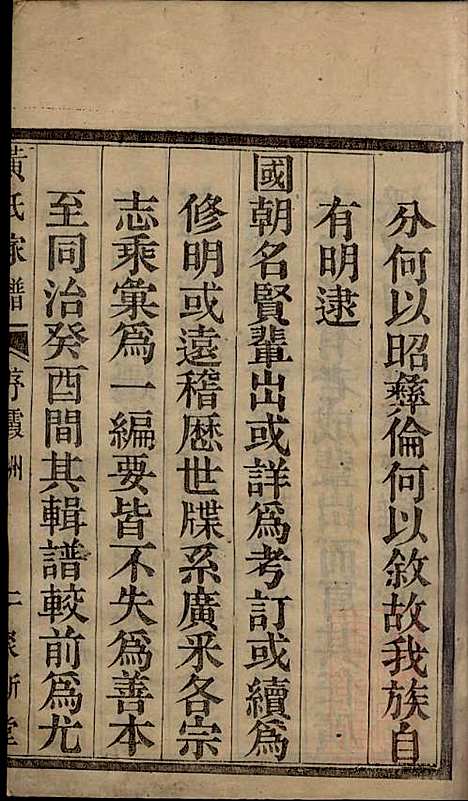 分何以昭彝倫何以敘故我族自
有明逮
國朝名賢輩出或詳爲考訂或續爲
修明或遠稽歷世牒系廣采各宗
志乘彙爲一編要皆不失爲善本
至同治癸酉間其輯譜較前爲尤
黃氏家譜 序霞洲